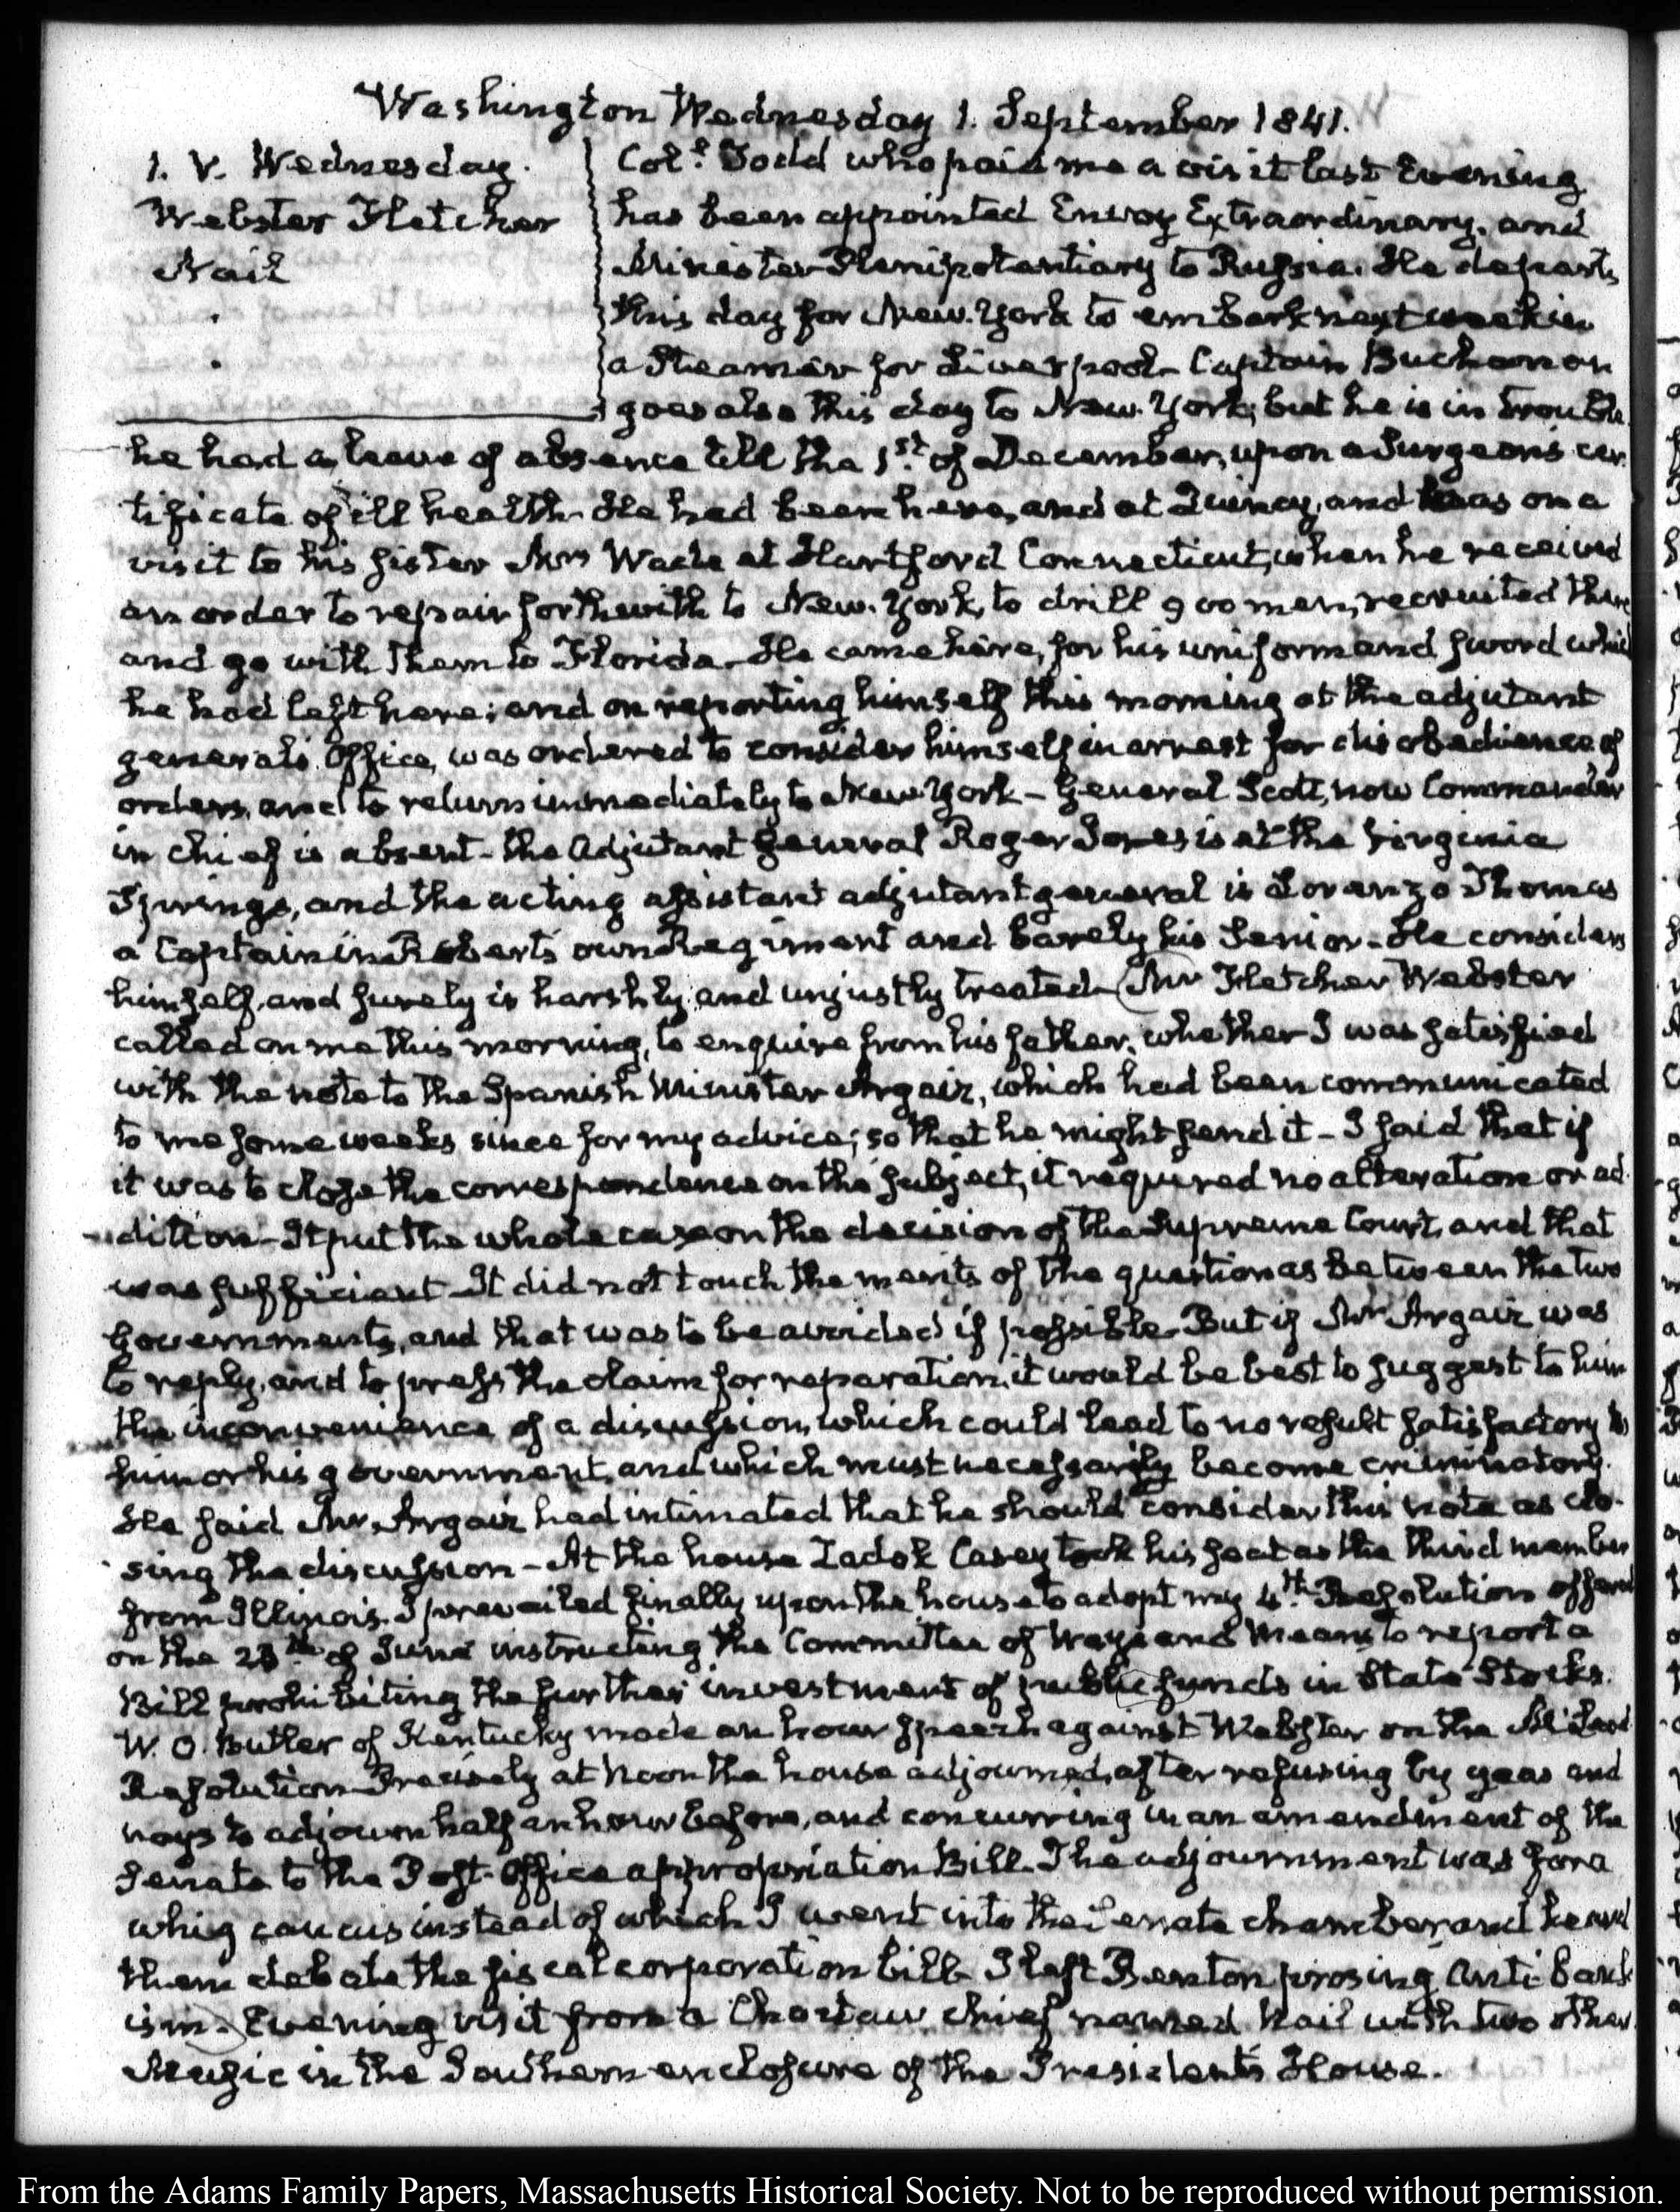 Washington Wednesday 1. September 1841.
1. V. Wednesday.
Webster Fletcher
Nail
Col.ᵉ Todd who paid me a visit last Evening
has been appointed Envoy Extraordinary, and
Minister Plenipotentiary to Russia. He departs
this day for New-York to embark next week in
a Steamer for Liverpool- Captain Buchanan
goes also this day to New-York; but he is in trouble
he had a leave of absence till the 1st. of December, upon a Surgeon's cer-
tificate of ill health. He had been here, and at Quincy, and was on a
visit to his sister Mrs Wade at Hartford Connecticut, when he received
an order to repair forthwith to New-York, to drill 900 men, recruited there
and go with them to Florida- He came here, for his uniform and sword which
he had left here; and on reporting himself this morning at the adjutant
general's Office, was ordered to consider himself in arrest for disobedience of
orders, and to return immediately to New-York- General Scott, now Commander
in chief is absent- the Adjutant General Roger Jones is at the Virginia
Springs, and the acting assistant adjutant general is Lorenzo Thomas
a Captain in Robert's own Regiment and barely his Senior- He considers
himself, and surely is harshly, and unjustly treated- Mr Fletcher Webster
called on me this morning, to enquire from his father, whether I was satisfied
with the note to the Spanish Minister Argaiz, which had been communicated
to me some weeks since for my advice; so that he might send it- I said that if
it was to close the correspondence on the subject, it required no alteration or ad-
dition- It put the whole case on the decision of the Supreme Court, and that
was sufficient- It did not touch the merits of the question as between the two
Governments, and that was to be avoided if possible- But if Mr Argaiz was
to reply, and to press the claim for reparation, it would be best to suggest to him
the inconvenience of a discussion, which could lead to no result satisfactory to
him or his government, and which must necessarily become criminatory.
He said Mr. Argaiz had intimated that he should consider this note as clo-
sing the discussion- At the house Zadok Casey took his seat as the third member
from Illinois. I prevailed finally upon the house to adopt my 4th. Resolution offered
on the 23d of June instructing the Committee of Ways and Means to report a
Bill prohibiting the further investment of public funds in State Stocks.
W. O. Butler of Kentucky made an hour speech against Webster on the McLeod
Resolution- Precisely at Noon the house adjourned, after refusing by yeas and
nays to adjourn half an hour before, and concurring in an amendment of the
Senate to the Post-Office appropriation Bill- The adjournment was for a
whig caucus instead of which I went into the Senate chamber and heard
them debate the fiscal corporation bill- I left Benton prosing Anti-bank-
ism- Evening visit from a Choctaw chief named Nail with two other
Music in the Southern enclosure of the President's House.
From the Adams Family Papers, Massachusetts Historical Society. Not to be reproduced without permission.